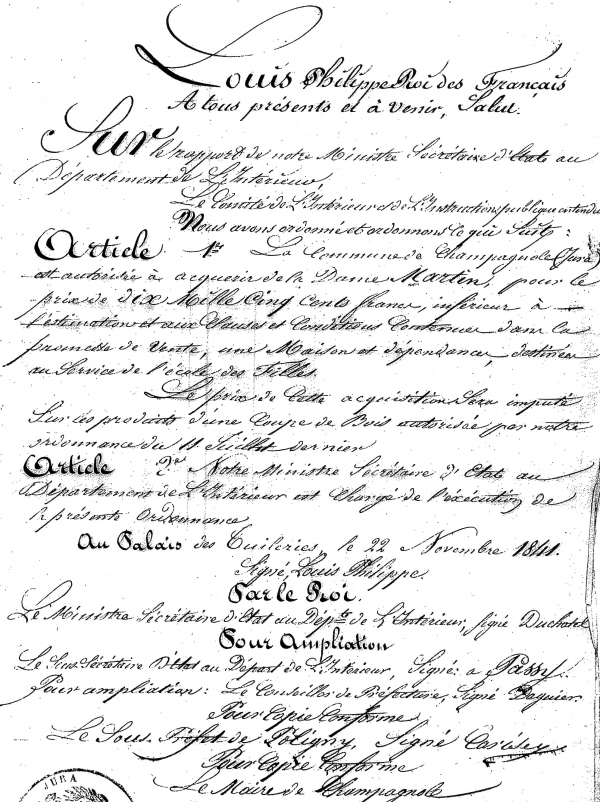 Louis Philippe Roi des Français
A tous présents et à venir, Salut.
Sur le rapport de notre Ministre Secrétaire d'Etat au
Département de L'Intérieur,
Le Comité de L'Intérieur et de L'Instruction publique entendu
Nous avons ordonné et ordonnons ce qui suit :
Article 1er La Commune de Champagnole (Jura)
est autorisée à acquérir de la Dame Martin, pour le
prix de dix Mille Cinq Cents francs, inférieur à
l'estimation et aux Clauses et Conditions Contenues dans la
promesse de Vente, une Maison et dépendances, destinées
au Service de l'école des Filles.
Le prix de Cette acquisition Sera imputé
Sur les produits d'une Coupe de Bois autorisée par notre
ordonnance du 11 Juillet dernier
Article 2e Notre Ministre Secrétaire d'Etat au
Département de L'Intérieur est Chargé de l'exécution de
la présente Ordonnance
Au Palais des Tuileries, le 22 Novembre 1841.
Signé, Louis Philippe.
Par le Roi.
Le Ministre Secrétaire d'Etat au Dépte de L'Intérieur, signé Duchatel
Pour Ampliation
Le Sous Secrétaire d'Etat au Départ de L'Intérieur, Signé : a Passy.
Pour ampliation : Le Conseiller de Préfecture, Signé
Pour Copie Conforme
Le Sous-Préfet de Poligny, Signé
Pour Copie Conforme
Le Maire de Champagnole
JURA